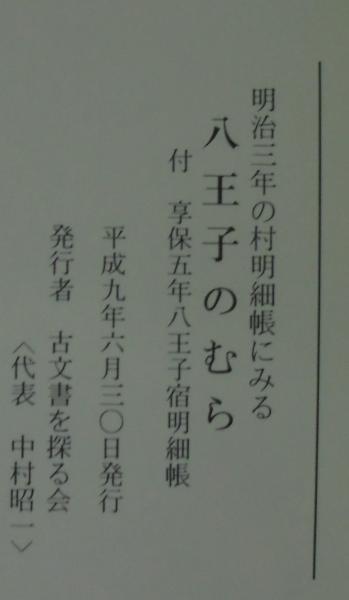 明治三年の村明細帳にみる
八王子のむら
付　享保五年八王子宿明細帳
平成九年六月三〇日発行
発行者　古文書を探る会
〈代表　中村昭一〉